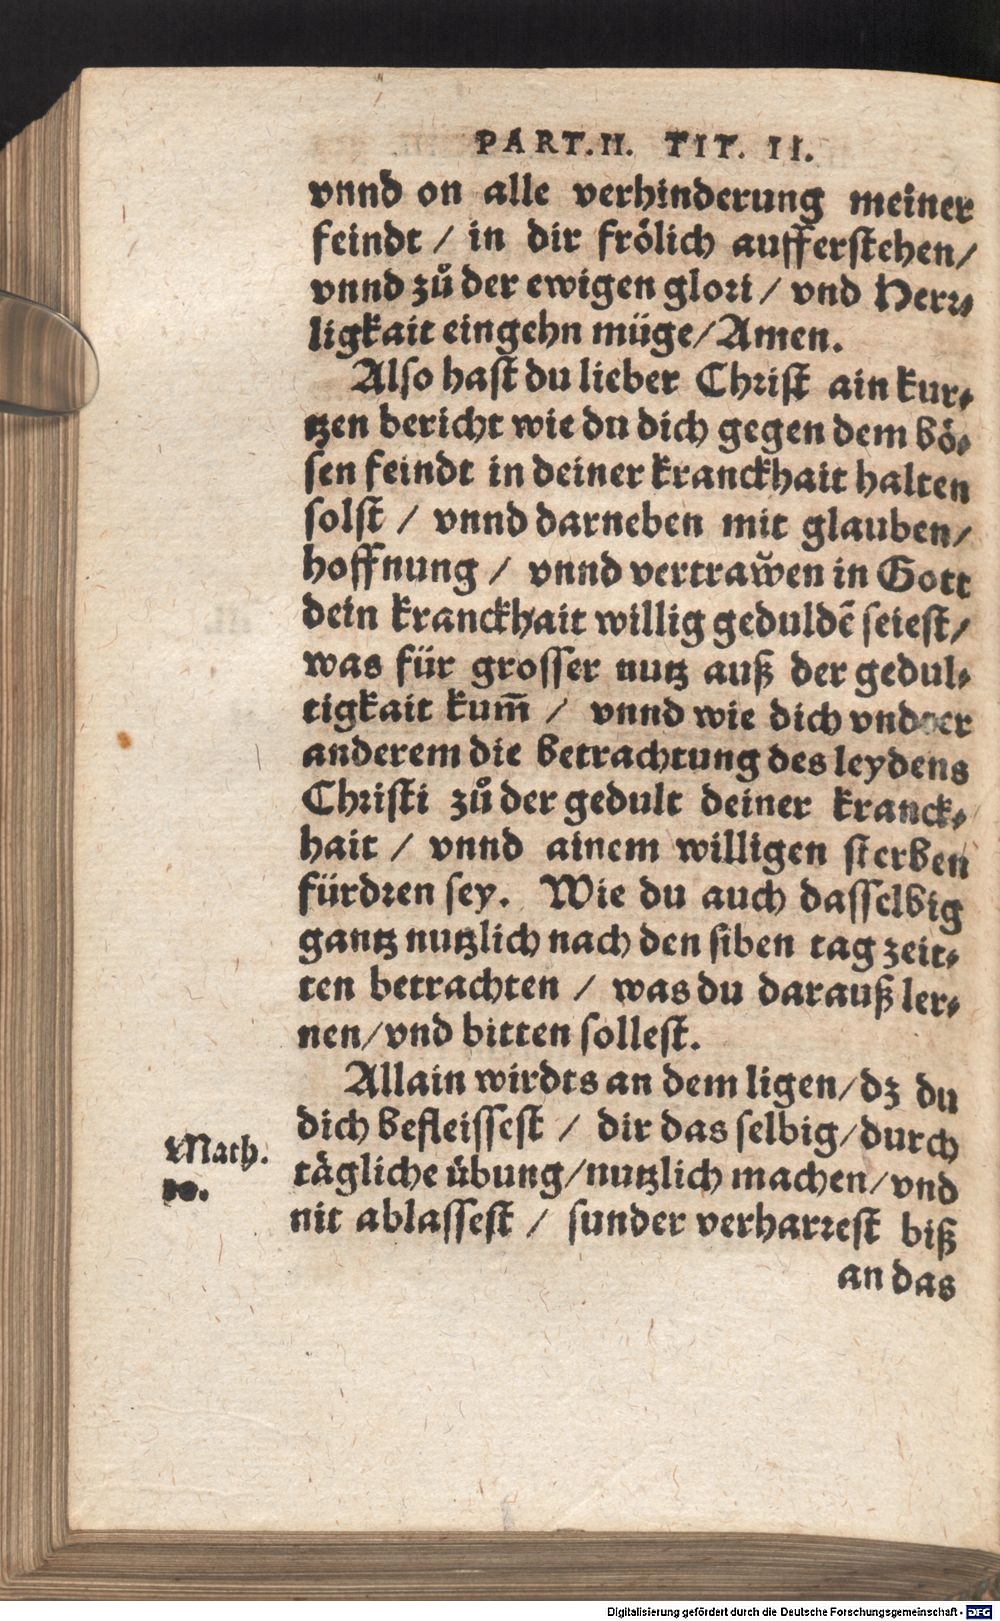 PART.II. TIT. II.
vnnd on alle verhinderung meiner
feindt / in dir frölich aufferstehen/
vnnd zů der ewigen glori / vnd Herr⸗
ligkait eingehn müge/Amen.
Also hast du lieber Christ ain kur⸗
tzen bericht wie du dich gegen dem bö⸗
sen feindt in deiner kranckhait halten
solst / vnnd darneben mit glauben/
hoffnung / vnnd vertraw̆en in Gott
dein kranckhait willig geduldē seiest/
was für grosser nutz auß der gedul⸗
tigkait kum̄ / vnnd wie dich vnder
anderem die betrachtung des leydens
Christi zů der gedult deiner kranck⸗
hait / vnnd ainem willigen sterben
fürdren sey. Wie du auch dasselbig
gantz nutzlich nach den siben tag zeit⸗
ten betrachten / was du darauß ler⸗
nen/vnd bitten sollest.
Allain wirdts an dem ligen/dz du
dich befleissest / dir das selbig/durch
tägliche übung/nutzlich machen/vnd
nit ablassest / sunder verharrest biß
an das
Math.
10.
Digitalisierung gefördert durch die Deutsche Forschungsgemeinschaft - DFG